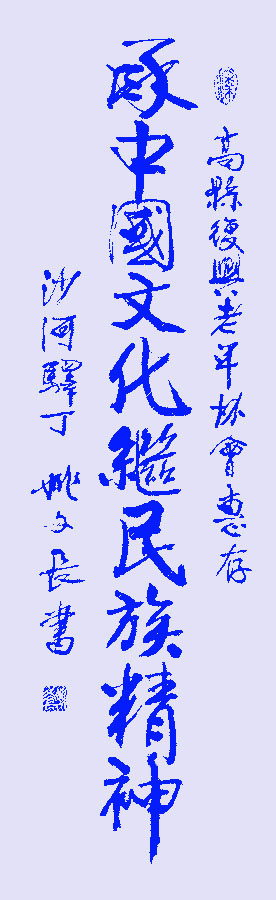 高縣復興老年协會惠存
中國文化繼民族精神
沙河驛丁 姚文長書